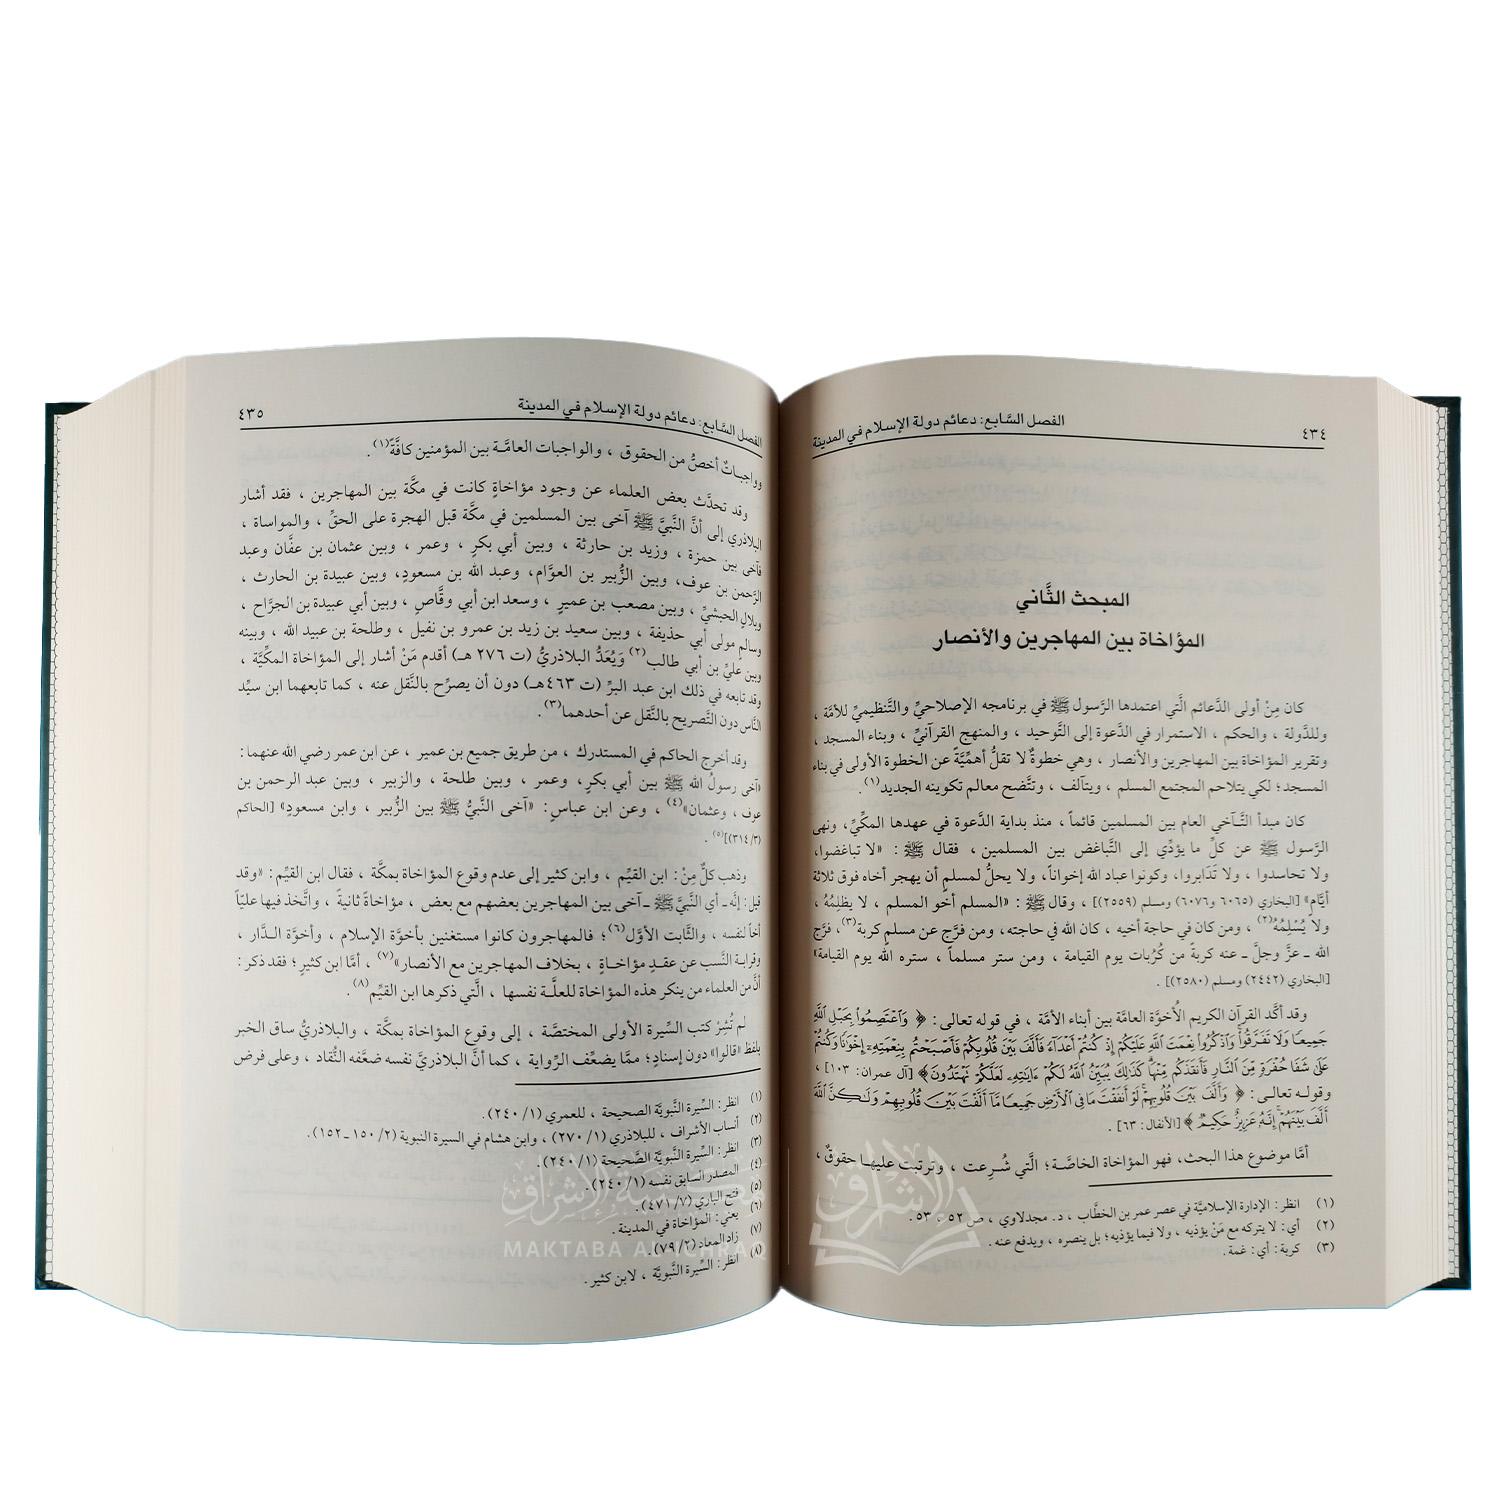 ٤٣٤
الفصل السَّابع: دعائم دولة الإسلام في المدينة
المبحث الثَّاني
المؤاخاة بين المهاجرين والأنصار
كان مِنْ أولى الدَّعائم الَّتي اعتمدها الرَّسول ﷺ في برنامجه الإصلاحيِّ والتَّنظيميِّ للأمَّة ،
وللدَّولة ، والحكم ، الاستمرار في الدَّعوة إلى التَّوحيد ، والمنهج القرآنيِّ ، وبناء المسجد ،
وتقرير المؤاخاة بين المهاجرين والأنصار ، وهي خطوةٌ لا تقلُّ أهمِّيَّةً عن الخطوة الأولى في بناء
المسجد؛ لكي يتلاحم المجتمع المسلم ، ويتآلف ، وتتَّضح معالم تكوينه الجديد(١).
كان مبدأ التَّـآخي العام بين المسلمين قائماً ، منذ بداية الدَّعوة في عهدها المكِّيِّ، ونهى
الرَّسول ﷺ عن كلِّ ما يؤدِّي إلى التَّباغض بين المسلمين ، فقال ﷺ : «لا تباغضوا،
ولا تحاسدوا ، ولا تَدَابروا، وكونوا عباد الله إخواناً، ولا يحلُّ لمسلمٍ أن يهجر أخاه فوق ثلاثة
أيَّام» [البخاري (٦٠٦٥ و٦٠٧٦) ومسلم (٢٥٥٩)] ، وقال ﷺ : «المسلم أخو المسلم ، لا يظلِمُهُ ،
ولا يُسْلِمُهُ(٢) ، ومن كان في حاجة أخيه ، كان الله في حاجته، ومن فرَّج عن مسلمٍ كربة(٣)، فرَّج
الله ـ عزَّ وجلَّ ـ عنه كربةً من كُرُبات يوم القيامة ، ومن ستر مسلماً ، ستره الله يوم القيامة»
[البخاري (٢٤٤٢) ومسلم (٢٥٨٠)] .
وقد أكَّد القرآن الكريم الأخوَّة العامَّة بين أبناء الأمَّة ، في قوله تعالى: ﴿ وَاعْتَصِمُوا بِحَبْلِ اللَّهِ
جَمِيعًا وَلَا تَفَرَّقُوا وَاذْكُرُوا نِعْمَتَ اللَّهِ عَلَيْكُمْ إِذْ كُنتُمْ أَعْدَاءً فَأَلَّفَ بَيْنَ قُلُوبِكُمْ فَأَصْبَحْتُم بِنِعْمَتِهِ إِخْوَانًا وَكُنتُمْ
عَلَىٰ شَفَا حُفْرَةٍ مِّنَ النَّارِ فَأَنقَذَكُم مِّنْهَا كَذَٰلِكَ يُبَيِّنُ اللَّهُ لَكُمْ ءَايَاتِهِ لَعَلَّكُمْ تَهْتَدُونَ﴾ [آل عمران: ١٠٣] ،
وقولـه تعالـى: ﴿ وَأَلَّفَ بَيْنَ قُلُوبِهِمْ لَوْ أَنفَقْتَ مَا فِي الْأَرْضِ جَمِيعًا مَّا أَلَّفْتَ بَيْنَ قُلُوبِهِمْ وَلَٰكِنَّ اللَّهَ
أَلَّفَ بَيْنَهُمْ إِنَّهُ عَزِيزٌ حَكِيمٌ ﴾ [الأنفال: ٦٣] .
أمَّا موضوع هذا البحث، فهو المؤاخاة الخاصَّـة؛ الَّتي شُـرعت ، وترتبت عليهـا حقوقٌ ،
(١) انظر : الإدارة الإسلاميَّة في عصر عمر بن الخطَّاب ، د. مجدلاوي ، ص ٥٢ ، ٥٣ .
(٢) أي : لا يتركه مع مَنْ يؤذيه ، ولا فيما يؤذيه؛ بل ينصره ، ويدفع عنه .
(٣) كربة : أي : غمة .
الفصل السَّابع: دعائم دولة الإسلام في المدينة
٤٣٥
وواجبـاتٌ أخصُّ من الحقوق ، والواجبات العامَّـة بين المؤمنين كافَّةً(١).
وقد تحدَّث بعض العلماء عن وجود مؤاخاةٍ كانت في مكَّة بين المهاجرين ، فقد أشار
البلاذري إلى أنَّ النَّبيَّ ﷺ آخى بين المسلمين في مكَّة قبل الهجرة على الحقِّ ، والمواساة ،
فآخى بين حمزة ، وزيد بن حارثة ، وبين أبي بكرٍ ، وعمر ، وبين عثمان بن عفَّان وعبد
الرَّحمن بن عوف، وبين الزُّبير بن العوَّام، وعبد الله بن مسعودٍ، وبين عبيدة بن الحارث ،
وبلالٍ الحبشيِّ ، وبين مصعب بن عميرٍ ، وسعد ابن أبي وقَّاص ، وبين أبي عبيدة بن الجرَّاح ،
وسالمٍ مولى أبي حذيفة ، وبين سعيد بن زيد بن عمرو بن نفيل ، وطلحة بن عبيد الله ، وبينه
وبين عليِّ بن أبي طالب(٢) وَيُعَدُّ البلاذريُّ (ت ٢٧٦ هـ) أقدم مَنْ أشار إلى المؤاخاة المكِّيَّة ،
وقد تابعه في ذلك ابن عبد البرِّ (ت ٤٦٣هـ) دون أن يصرِّح بالنَّقل عنه ، كما تابعهما ابن سيِّد
النَّاس دون التَّصريح بالنَّقل عن أحدهما(٣).
وقد أخرج الحاكم في المستدرك ، من طريق جميع بن عمير ، عن ابن عمر رضي الله عنهما :
«آخى رسولُ الله ﷺ بين أبي بكرٍ، وعمر ، وبين طلحة ، والزبير ، وبين عبد الرحمن بن
عوف ، وعثمان»(٤) ، وعن ابن عباسٍ: «آخى النَّبيُّ ﷺ بين الزُّبير ، وابن مسعودٍ» [الحاكم
(٣/٣١٤)](٥) .
وذهب كلٌّ مِنْ : ابن القيِّم ، وابن كثير إلى عدم وقوع المؤاخاة بمكَّة ، فقال ابن القيِّم : «وقد
قيل : إنَّه ـ أي النَّبيَّ ﷺ ـ آخى بين المهاجرين بعضهم مع بعض ، مؤاخاةً ثانيةً ، واتَّخذ فيها عليّاً
أخاً لنفسه ، والثَّابت الأوَّل(٦)؛ فالمهاجرون كانوا مستغنين بأخوَّة الإسلام ، وأخوَّة الدَّار ،
وقرابـة النَّسب عن عقدِ مؤاخـاةٍ ، بخلاف المهاجرين مع الأنصار»(٧) ، أمَّا ابن كثيرٍ؛ فقد ذكر :
أنَّ من العلماء من ينكر هذه المؤاخاة للعلَّـة نفسها ، الَّتي ذكرها ابن القيِّم(٨).
لم تُشِرْ كتب السِّيرة الأولى المختصَّة ، إلى وقوع المؤاخاة بمكَّة ، والبلاذريُّ ساق الخبر
بلفظ «قالوا» دون إسنادٍ؛ ممَّا يضعِّف الرِّواية ، كما أنَّ البلاذريَّ نفسه ضعَّفه النُّقاد ، وعلى فرض
(١) انظر : السِّيرة النَّبويَّة الصحيحة ، للعمري (١/ ٢٤٠).
(٢) أنساب الأشراف ، للبلاذري (١/ ٢٧٠) ، وابن هشام في السيرة النبوية (٢/ ١٥٠ ـ ١٥٢).
(٣) انظر : السِّيرة النَّبويَّة الصَّحيحة (١/ ٢٤٠).
(٤) المصدر السابق نفسه (١/ ٢٤٠).
(٥) فتح الباري (٧/ ٤٧١).
(٦) يعني : المؤاخاة في المدينة .
(٧) زاد المعاد (٢/ ٧٩).
(٨) انظر : السِّيرة النَّبويَّة ، لابن كثير .
مكتبة الإشراق
MAKTABA AL ICHRAQ
الإشراق